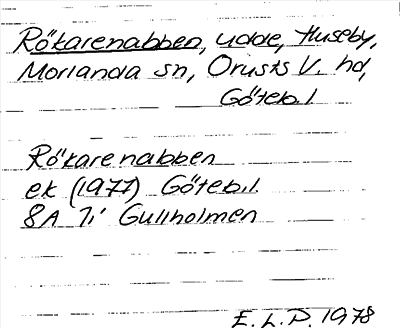 Rökarenabben, udde, Huseby,
Morlanda sn, Orusts V. hd,
Göteb.l
Rökarenabben
ek (1977) Göteb.l.
8A 7i Gullholmen
E.L.P. 1978